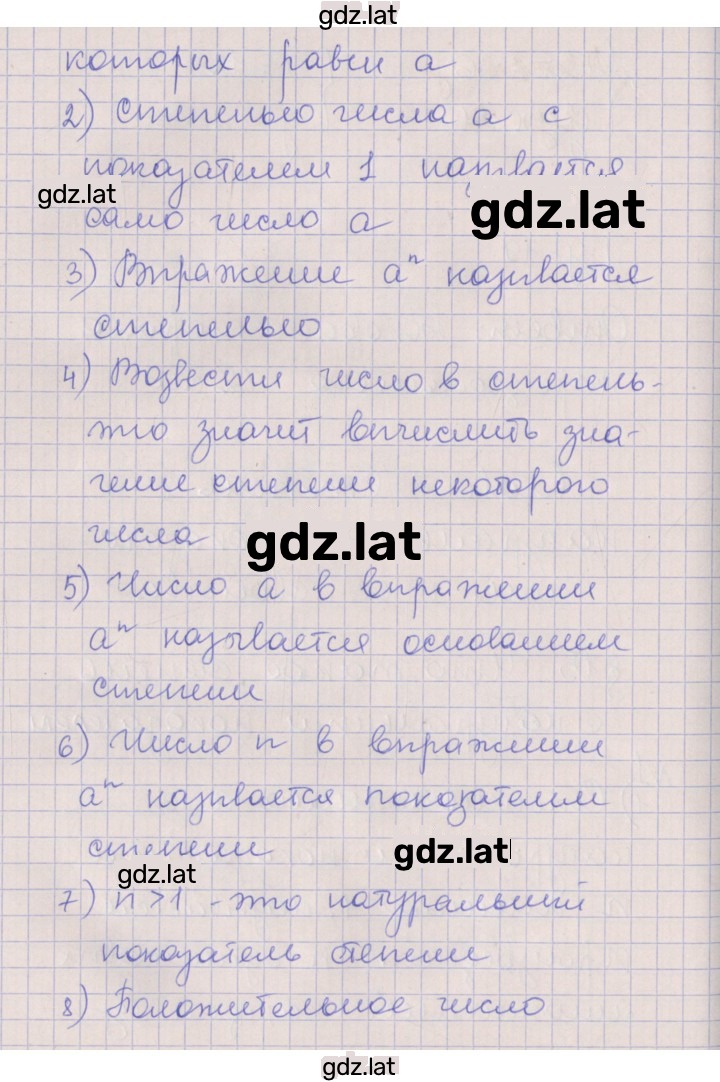 gdz.lat
которых равен а
2) Степенью числа а с
показателем 1 называется
gdz.lat
gdz.lat
само число а
3) Выражение aⁿ называется
степенью
4) Возвести число в степень-
это значит вычислить зна-
чение степени некоторого
числа
gdz.lat
5) Число а в выражении
aⁿ называется основанием
степени
6) Число n в выражении
aⁿ называется показателем
степени
gdz.lat
gdz.lat
7) n>1 - это натуральный
показатель степени
8) Положительное число
gdz.lat